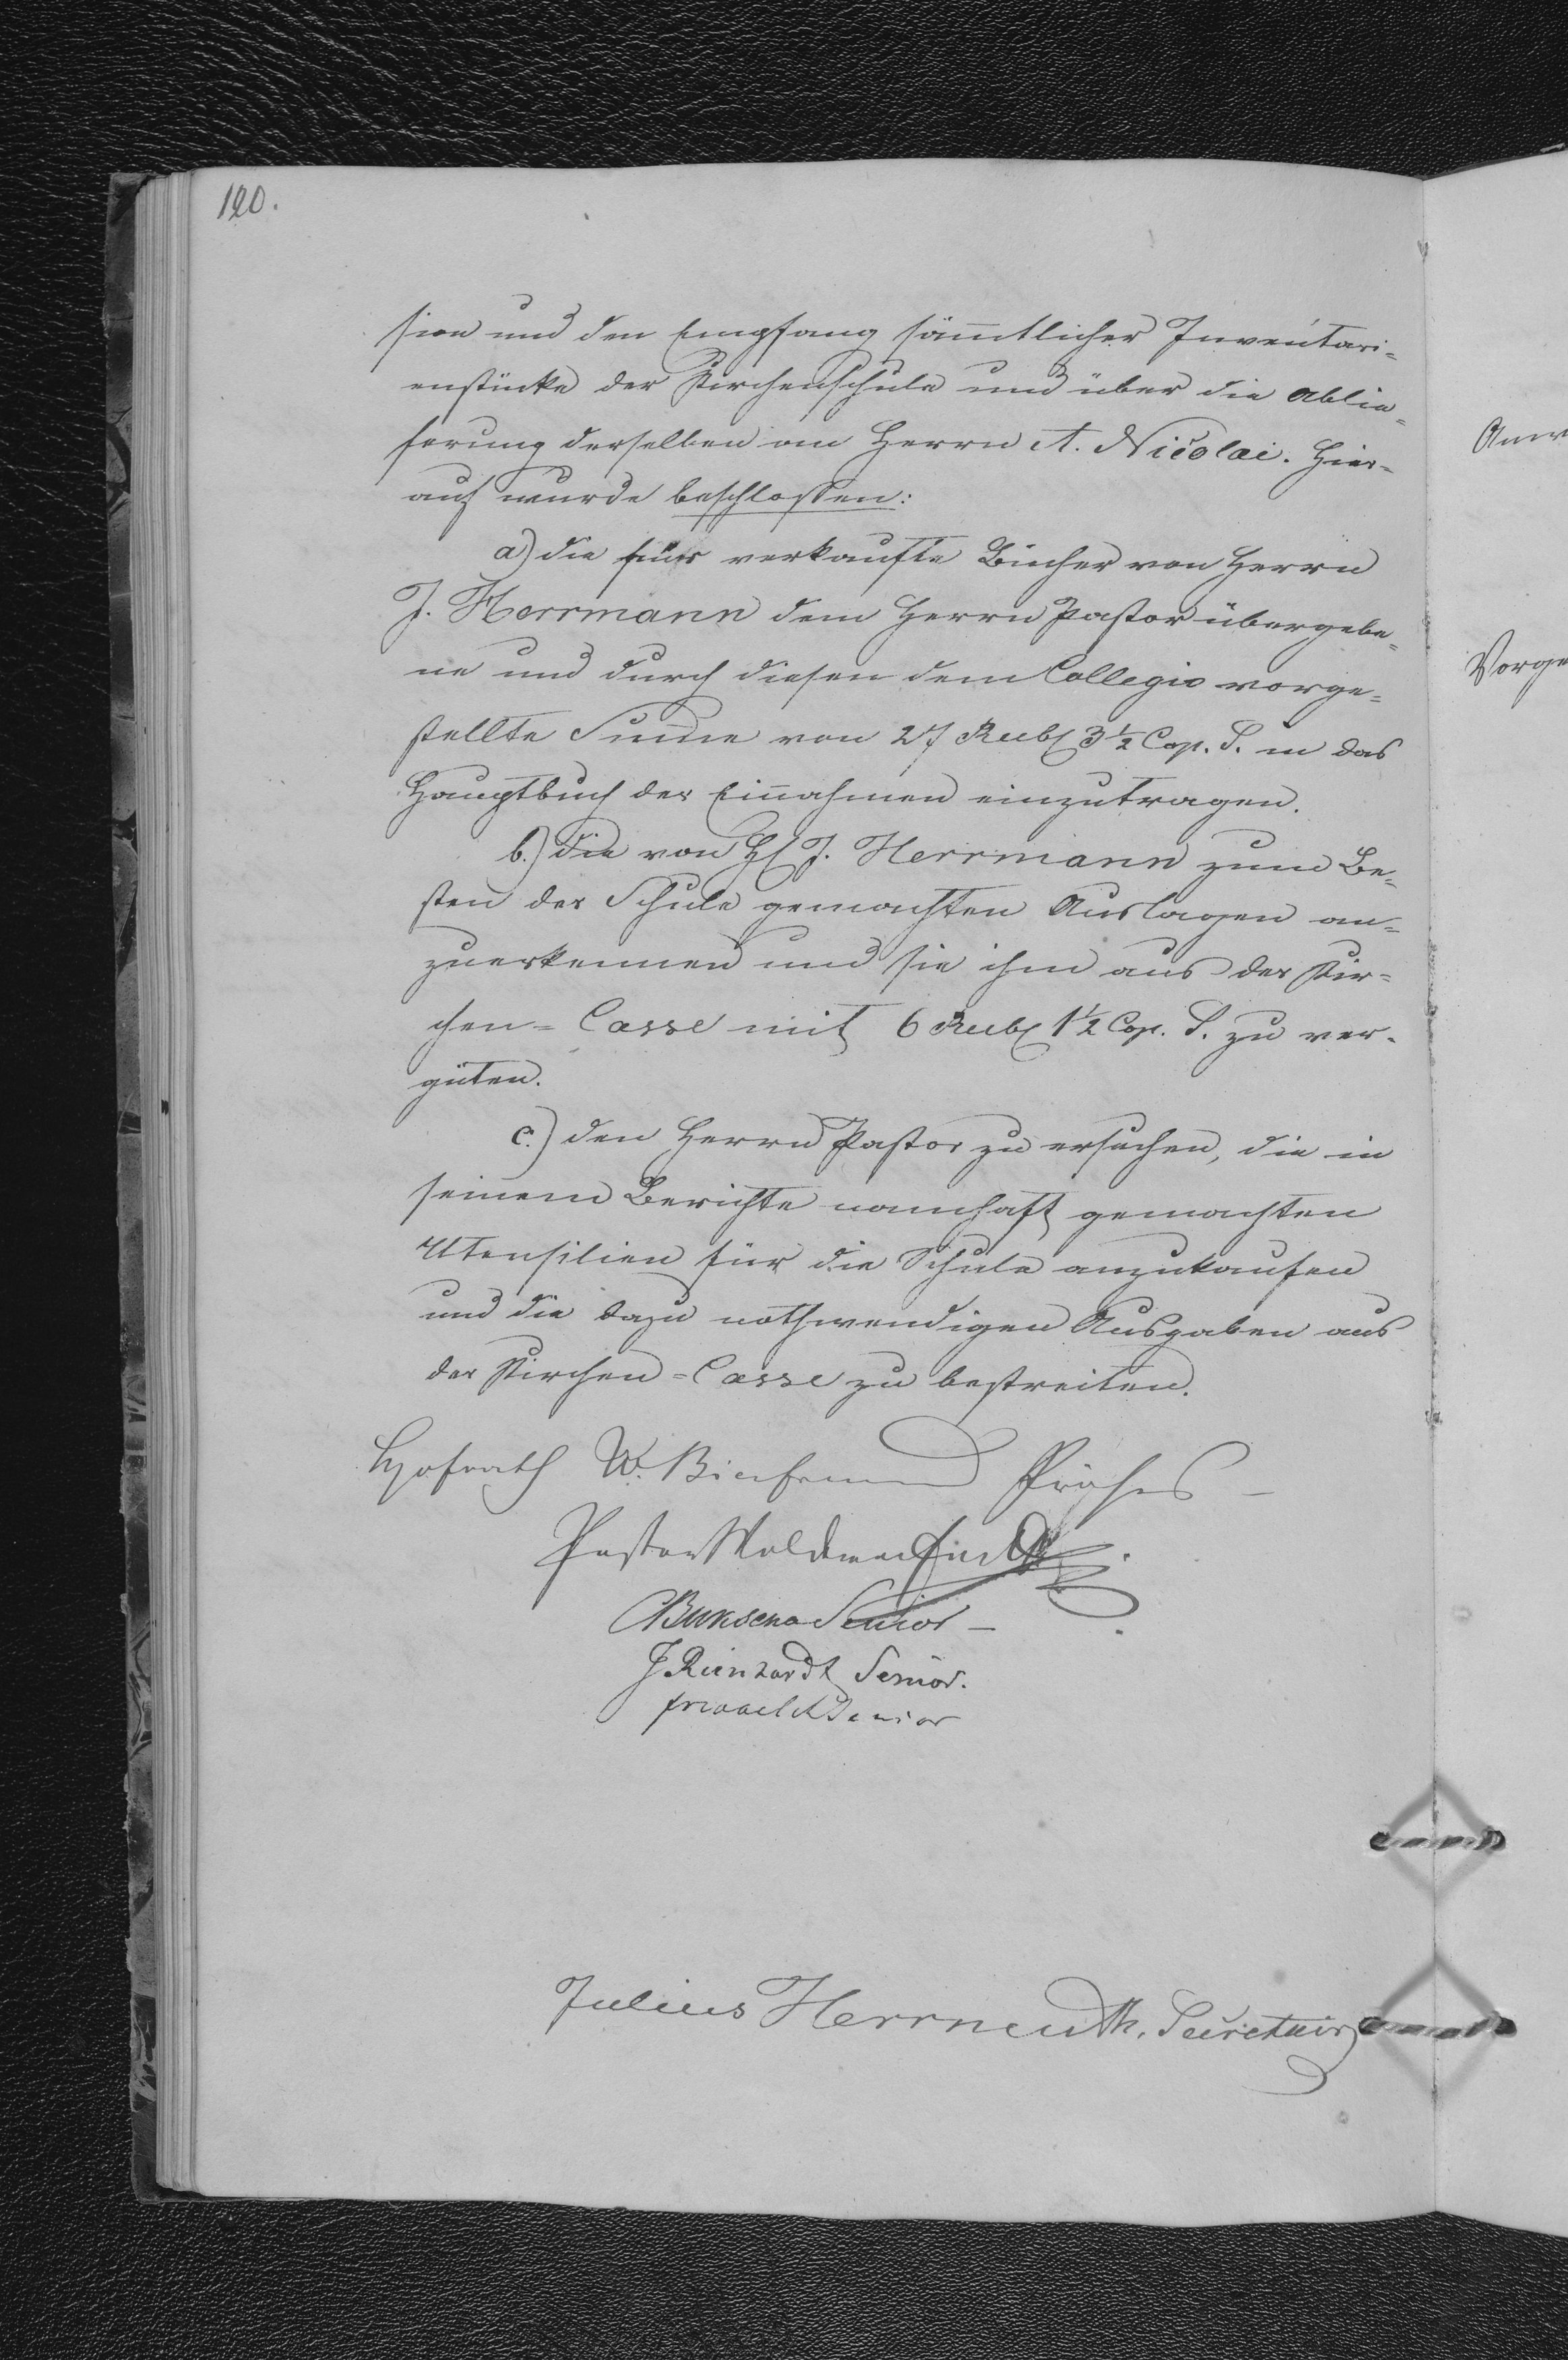 120.
sion und den Empfang sämtlicher Inventari-
enstücke der Kirchenschule und über die Ablie-
ferung derselben an Herrn A. Nicolai. Hier-
auf wurde beschlossen:
a) die für verkaufte Bücher von Herrn
J. Herrmann dem Herrn Pastor übergebe-
ne und durch diesen dem Collegio vorge-
stellte Summe von 27 Rub. 3 1/2 Cop. S. in das
Hauptbuch der Einnahmen einzutragen.
b.) die von H. J. Herrmann zum Be-
sten der Schule gemachten Auslagen an-
zuerkennen und sie ihm aus der Kir-
chen-Casse mit 6 Rub. 1 1/2 Cop. S. zu ver-
güten.
c.) den Herrn Pastor zu ersuchen, die in
seinem Berichte namhaft gemachten
Utensilien für die Schule anzukaufen
und die dazu nothwendigen Ausgaben aus
der Kirchen-Casse zu bestreiten.
Hofrath W. Präses
Pastor Woldemar
Senior
J Reinhardt Senior.
Senior
Julius Herrmuth. Secretair
Vorge